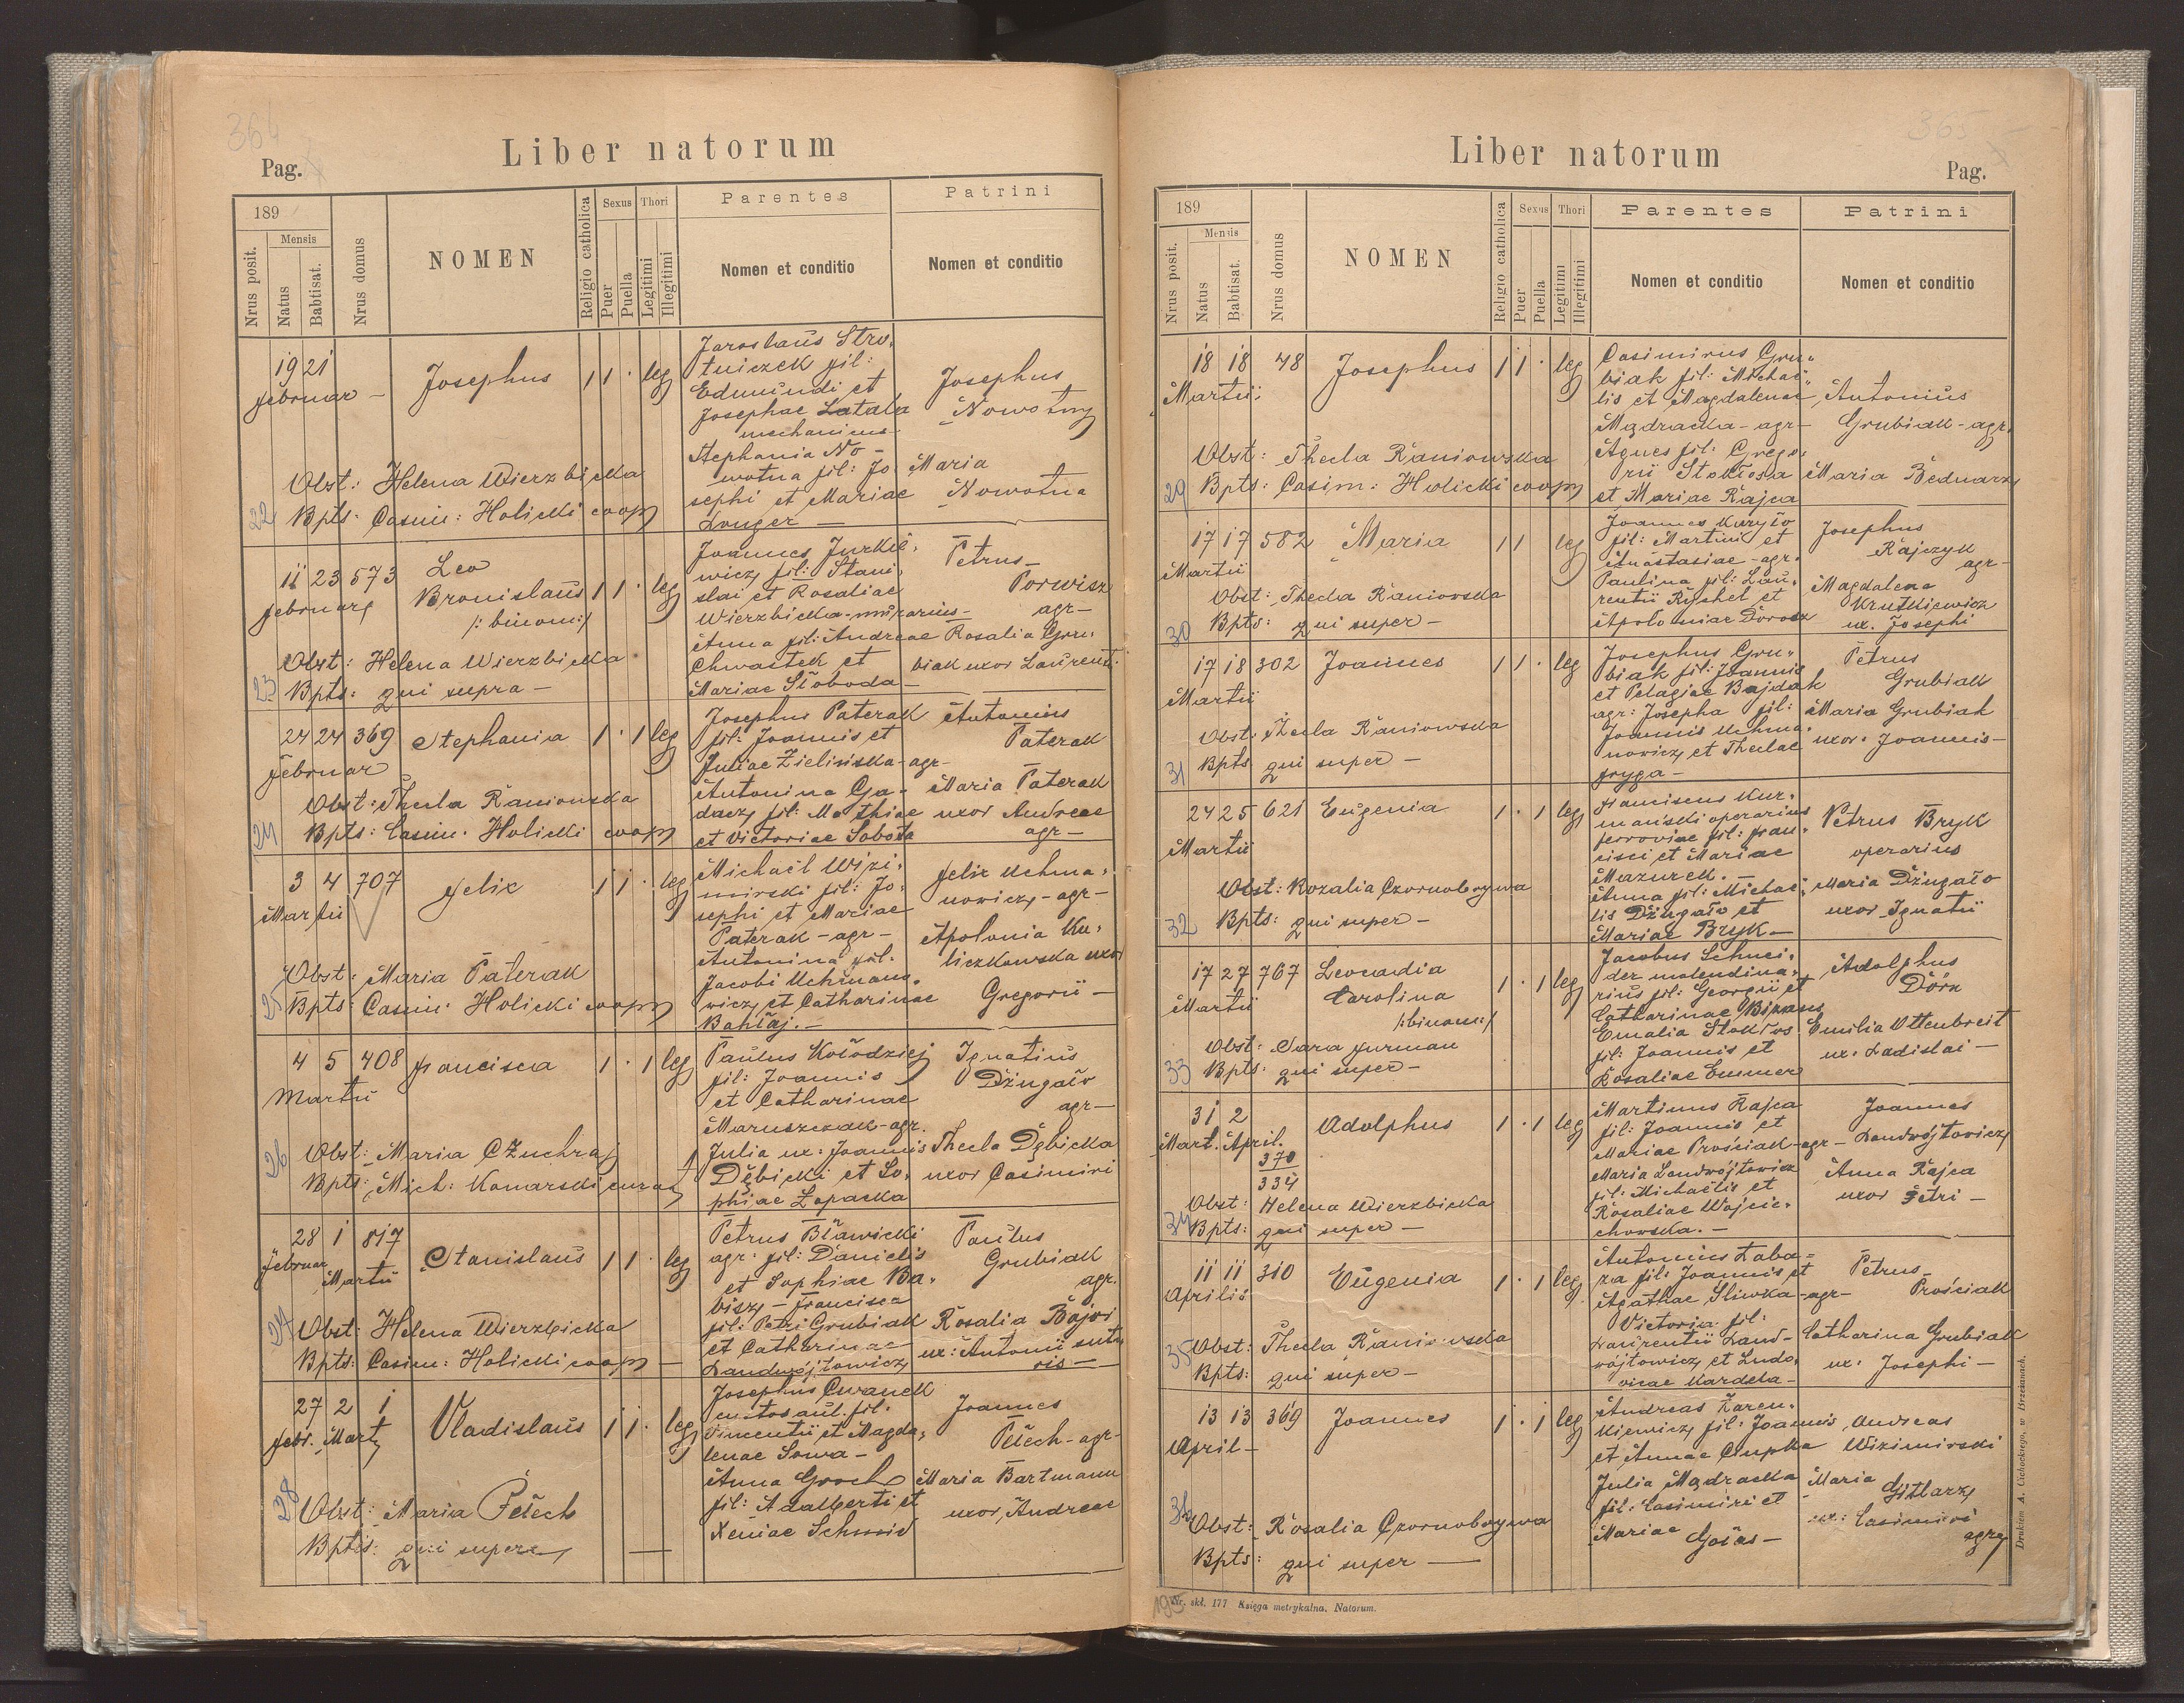 364
Liber natorum
Pag.
189
Nrus posit.
Mensis
Natus
Babtisat.
Nrus domus
NOMEN
Religio catholica
Sexus
Puer
Puella
Thori
Legitimi
Illegitimi
Parentes
Nomen et conditio
Patrini
Nomen et conditio
19 21
Februar –
Josephus
1 1 · leg
Jaroslaus Stro-
tniczek fil:
Edmundi et
Josephae Latala
mechanicus
Stephania No-
wotna fil: Jo
sephi et Mariae
Josephus
Nowotny
Maria
Nowotna
Obst: Helena Wierzbicka
22 Bpts: Casim: Holicki coop
11 23 573
Februar
Leo
Bronislaus
/: binom:/
1 1 · leg
Joannes Jurkie-
wicz fil: Stani
slai et Rosaliae
Wierzbicka - murarius -
Anna fil: Andreae
Chwastek et
Mariae Słoboda
Petrus
Porwisz
agr –
Rosalia Gru-
biak uxor Laurenti
Obst: Helena Wierzbicka
23 Bpts: qui supra –
24 24 369
Februar
Stephania
1 · 1 leg
Josephus Paterak
fil: Joannis et
Juliae Zielinska - agr -
Antonina Ga-
dacz fil: Mathiae
et Victoriae Sobota
Antonius
Paterak
Maria Paterak
uxor Andreae
agr –
Obst: Thecla Raniowska
24 Bpts: Casim: Holicki coop
3 4 707
Martii
Felix
1 1 · leg
Michael Wizi-
mirski fil: Jo-
sephi et Mariae
Paterak - agr -
Antonina fil.
Jacobi Uchmano-
wicz et Catharinae
Felix Uchma-
nowicz - agr -
Apolonia Ku-
liczkowska uxor
Gregorii –
Obst: Maria Paterak
25 Bpts: Casim: Holicki coop
4 5 408
Martii
Francisca
1 · 1 leg
Paulus Kołodziej
fil: Joannis
et Catharinae
Maruszczak - agr.
Julia ux: Joannis
Dębicki et So-
phiae Łopacka
Ignatius
Dżugało
agr –
Thecla Dębicka
uxor Casimiri
26 Obst: Maria Czuchraj
Bpts: Mich: Konarski curat
28 1 817
Februar
Martii
Stanislaus
1 1 · leg
Petrus Bławicki
agr: fil: Danielis
et Sophiae Ba-
bisz – Francisca
fil: Petri Grubiak
et Catharinae
Landwójtowicz
Paulus
Grubiak
agr.
Rosalia Bojoi
ux: Antonii suto
ris –
27 Obst: Helena Wierzbicka
Bpts: Casim: Holicki coop –
27 2 1
Febr. Mart
Vladislaus
1 1 · leg
Josephus Cwanek
custos aul. fil.
Vincentii et Magda-
lenae Sowa –
Anna Groch
fil: Adalberti et
Xeniae Schmid
Joannes
Pełech - agr -
Maria Bartmann
uxor Andreae
28 Obst: Maria Pełech
Bptis: qui supera –
365
Liber natorum
Pag.
189
Nrus posit.
Mensis
Natus
Babtisat.
Nrus domus
NOMEN
Religio catholica
Sexus
Puer
Puella
Thori
Legitimi
Illegitimi
Parentes
Nomen et conditio
Patrini
Nomen et conditio
18 18 48
Martii
Josephus
1 1 · leg
Casimirus Gru-
biak fil: Michae-
lis et Magdalenae
Mądracka - agr -
Agnes fil: Grego-
rii Stokłosa
et Mariae Rajca
Antonius
Grubiak - agr.
Maria Bednarz
Obst: Thecla Raniowska
29 Bpts: Casim: Holicki coop
17 17 582
Martii
Maria
1 1 leg
Joannes Kuryło
fil: Martini et
Anastasiae - agr.
Paulina fil: Lau-
rentii Ryshel et
Apoloniae Dorosz
Josephus
Rajczyk
agr –
Magdalena
Krutkiewicz
ux. Josephi
Obst: Thecla Raniowska
30 Bpts: qui super –
17 18 302
Martii
Joannes
1 1 · leg
Josephus Gru-
biak fil: Joannis
et Pelagiae Bajdak
agr: Josepha fil:
Joannis Uchma-
nowicz et Theclae
Fryga –
Petrus
Grubiak
Maria Grubiak
uxor Joannis –
Obst: Thecla Raniowska
31 Bpts qui super –
24 25 621
Martii
Eugenia
1 · 1 leg
Franciscus Kur-
mański operarius
ferroviae fil: Fran-
cisci et Mariae
Mazurek. –
Anna fil: Michae-
lis Dżugało et
Mariae Bryk –
Petrus Bryk
operarius
Maria Dżugało
uxor Ignatii
Obst: Rozalia Czornobrywa
32 Bpts: qui super –
17 27 767
Martii
Leocadia
Carolina
/:binom:/
1 · 1 leg
Jacobus Schnei-
der molendina-
rius fil: Georgii et
Catharinae Bipans
Emalia Stokłos
fil: Joannis et
Rosaliae Emmer
Adolphus
Dörn
Emilia Ottenbreit
ux: Ladislai –
Obst: Sara Furman
33 Bpts: qui super –
31 2
Mart. April.
370
334
Adolphus
1 · 1 leg
Martinus Rajca
fil: Joannis et
Mariae Prościak - agr -
Maria Landwójtowicz
fil: Michaelis et
Rosaliae Wojcie-
chowska. –
Joannes
Landwójtowicz
Anna Rajca
uxor Petri –
Obst: Helena Wierzbicka
34 Bpts: qui super –
11 11 310
Aprilis
Eugenia
1 · 1 leg
Antonius Łaba-
za fil: Joannis et
Agathae Sliwka - agr -
Victoria fil:
Laurentii Land-
wójtowicz et Ludo-
vicae Kardela –
Petrus
Prościak
Catharina Grubiak
ux: Josephi –
35 Obst: Thecla Raniowska
Bpts: qui super –
13 13 369
April –
Joannes
1 · 1 leg
Andreas Zaren-
kiewicz fil: Joannis
et Annae Czupka
Julia Mądracka
fil: Casimiri et
Mariae Gołas –
Andreas
Wizimirski
Maria Gitlarz
ux: Casimiri
agr
36 Obst: Rosalia Czornobrywa
Bpts: qui super –
Nr. skł. 177 Księga metrykalna, Natorum.
Drukiem A. Cichockiego, w Brzeżanach.